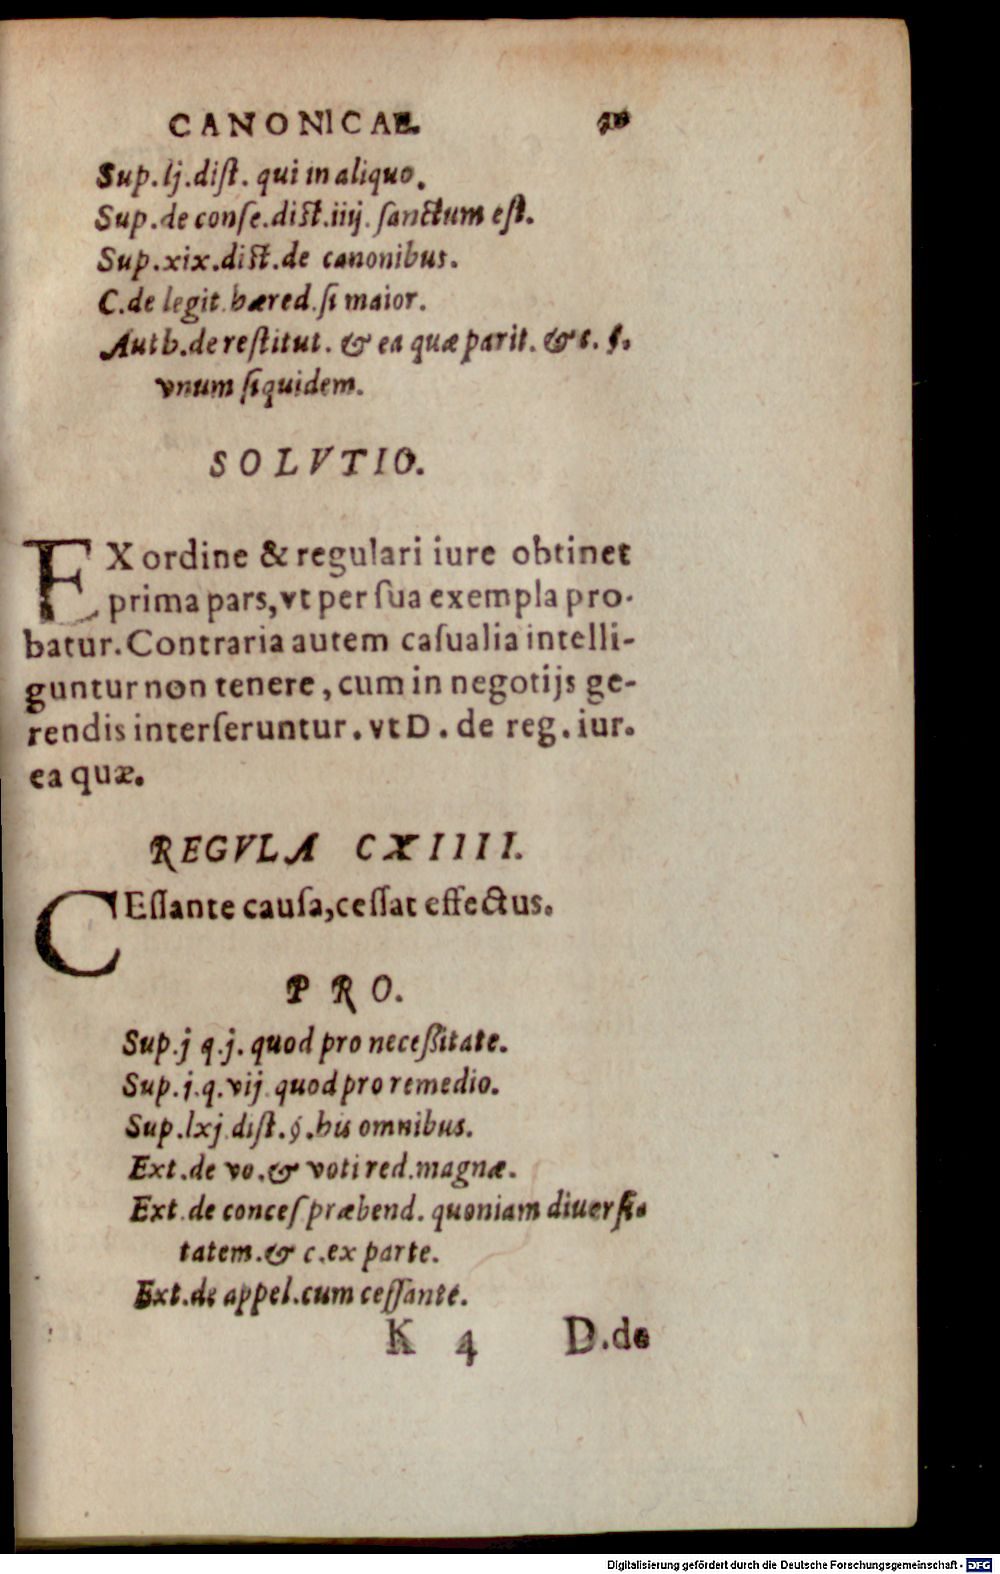 CANONICAE.
Sup. lj. dist. qui in aliquo.
Sup. de conse. dist. iiij. sanctum est.
Sup. xix. dist. de canonibus.
C. de legit. hæred. si maior.
Auth. de restitut. & ea quæ parit. & c. §.
vnum siquidem.
SOLVTIO.
EX ordine & regulari iure obtinet
prima pars, vt per sua exempla pro-
batur. Contraria autem casualia intelli-
guntur non tenere, cum in negotijs ge-
rendis interseruntur. vt D. de reg. iur.
ea quæ.
REGVLA CXIIII.
CEssante causa, cessat effectus.
PRO.
Sup. j q. j. quod pro necessitate.
Sup. j. q. vij. quod pro remedio.
Sup. lxj. dist. §. his omnibus.
Ext. de vo. & voti red. magnæ.
Ext. de conces præbend. quoniam diuersi-
tatem. & c. ex parte.
Ext. de appel. cum cessante.
K 4 D. de
Digitalisierung gefördert durch die Deutsche Forschungsgemeinschaft - DFG